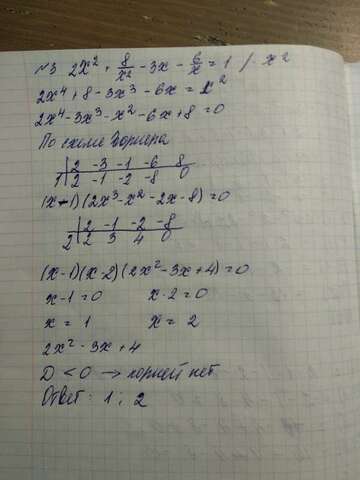 №3 2x² + 8/x² - 3x - 6/x = 1 / · x²
2x⁴ + 8 - 3x³ - 6x = x²
2x⁴ - 3x³ - x² - 6x + 8 = 0
По схеме Горнера
2 -3 -1 -6 8
1 2 -1 -2 -8 0
(x-1)(2x³ - x² - 2x - 8) = 0
2 -1 -2 -8
2 2 3 4 0
(x-1)(x-2)(2x² - 3x + 4) = 0
x - 1 = 0 x - 2 = 0
x = 1 x = 2
2x² - 3x + 4
D < 0 → корней нет
Ответ: 1; 2